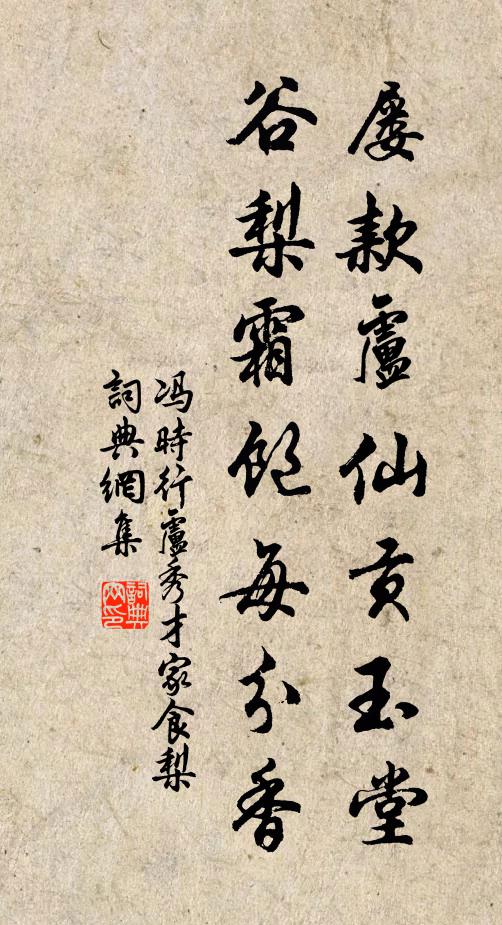 屡款盧仙貢玉堂
谷梨霜飽每分香
冯時行盧秀才家食梨
詞典網集
詞典
网印